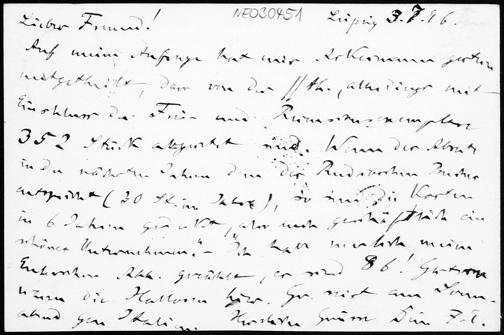 NE030451
Leipzig 3.7.96.
Lieber Freund!
Auf meine Anfrage hat mir Ackermann gestern
mitgetheilt, dass von der // Th., allerdings mit
Einschluss der Frei- und Recensionsexemplare
352 Stück abgesetzt sind. Wenn der Absatz
in den nächsten Jahren dem der Rudioschen
entspricht (30 St. im Jahre), so sind die Kosten
in 6 Jahren gedeckt, also auch geschäftlich ein
schönes Unternehmen." - Ich habe neulich meine
Abh. gezählt, es sind 86! Gestern
waren die hier. Gr. reist am Sonn-
abend gen Italien. Herzliche Grüsse Dein F. E.